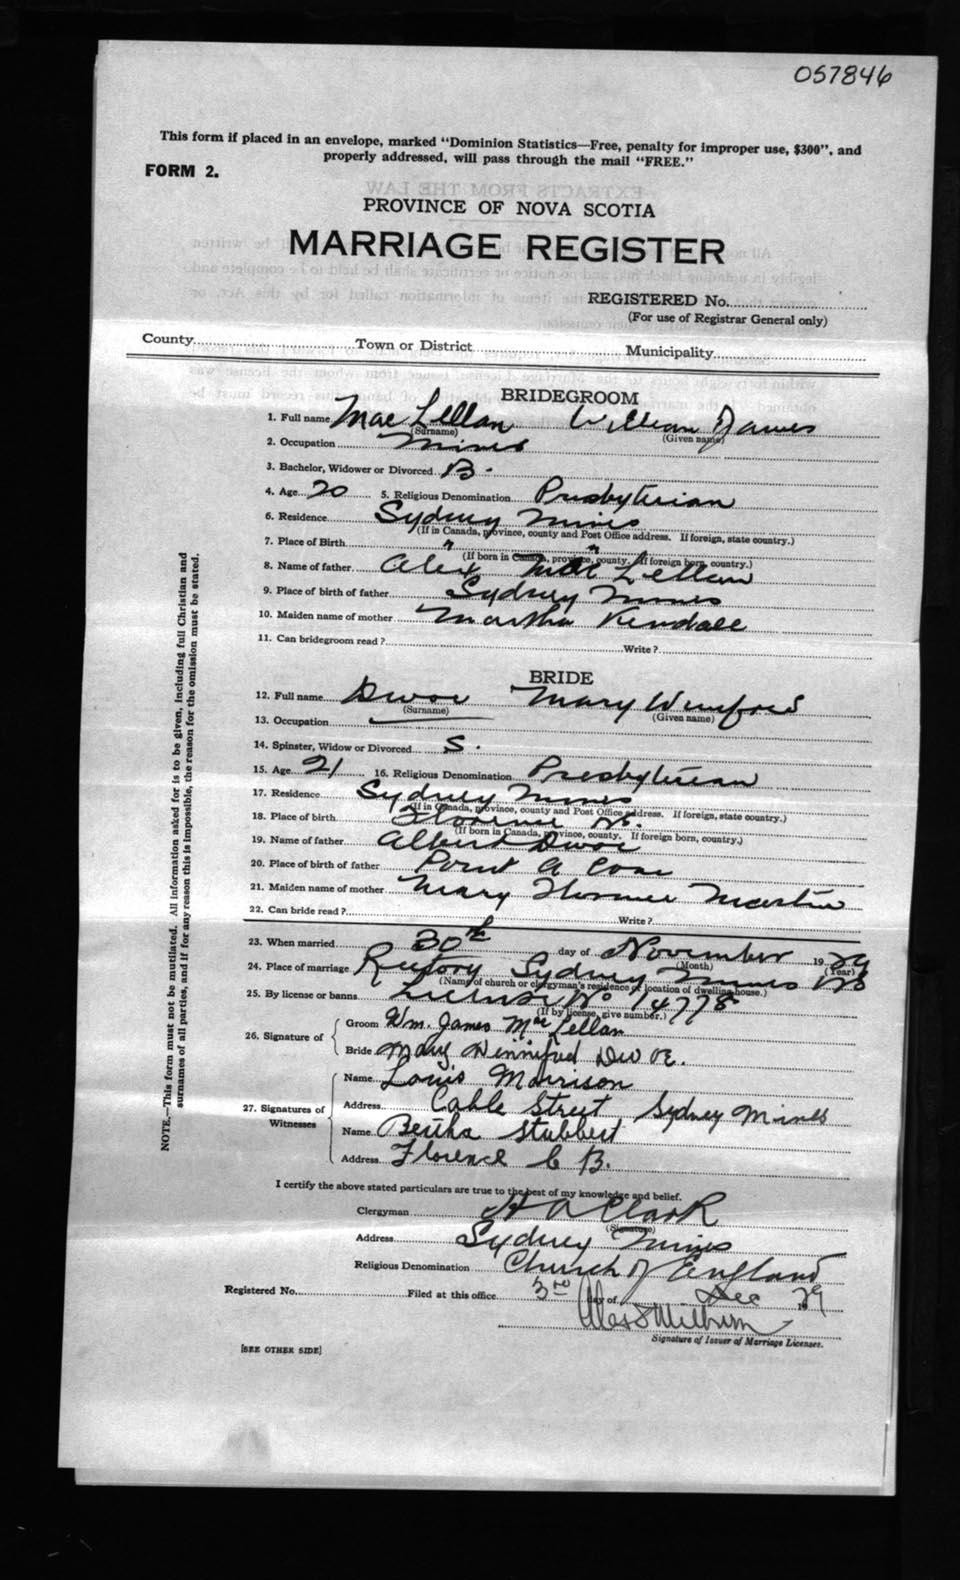 057846
This form if placed in an envelope, marked "Dominion Statistics—Free, penalty for improper use, $300", and
properly addressed, will pass through the mail "FREE."
FORM 2.
PROVINCE OF NOVA SCOTIA
MARRIAGE REGISTER
REGISTERED No.
(For use of Registrar General only)
County Town or District Municipality
BRIDEGROOM
1. Full name MacLellan William James
(Surname) (Given name)
2. Occupation Miner
3. Bachelor, Widower or Divorced B.
4. Age 20 5. Religious Denomination Presbyterian
6. Residence Sydney Mines
(If in Canada, province, county and Post Office address. If foreign, state country.)
7. Place of Birth " "
(If born in Canada, province, county. If foreign born, country.)
8. Name of father Alex MacLellan
9. Place of birth of father Sydney Mines
10. Maiden name of mother Martha Kendall
11. Can bridegroom read? Write?
BRIDE
12. Full name Dwoe Mary Winifred
(Surname) (Given name)
13. Occupation
14. Spinster, Widow or Divorced S.
15. Age 21 16. Religious Denomination Presbyterian
17. Residence Sydney Mines
(If in Canada, province, county and Post Office address. If foreign, state country.)
18. Place of birth Florence
(If born in Canada, province, county. If foreign born, country.)
19. Name of father Albert Dwoe
20. Place of birth of father Point A Cone
21. Maiden name of mother Mary Florence Martin
22. Can bride read? Write?
23. When married 30th day of November 1929
(Month) (Year)
24. Place of marriage Rectory Sydney Mines NS
(Name of church or clergyman's residence or location of dwelling house.)
25. By license or banns License No 14778
(If by license, give number.)
26. Signature of Groom Wm. James MacLellan
Bride Mary Winnifred Dwoe.
27. Signatures of Witnesses Name Louis Morrison
Address Cable Street Sydney Mines
Name Bertha Stubbert
Address Florence C B.
I certify the above stated particulars are true to the best of my knowledge and belief.
Clergyman H A Clark
(Signature)
Address Sydney Mines
Religious Denomination Church of England
Registered No. Filed at this office 3rd day of Dec 1929
Signature of Issuer of Marriage Licenses.
[SEE OTHER SIDE]
NOTE.—This form must not be mutilated. All information asked for is to be given, including full Christian and
surnames of all parties, and if for any reason this is impossible, the reason for the omission must be stated.